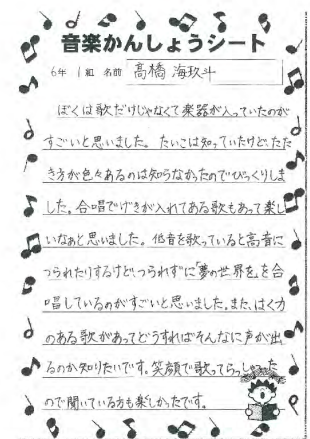 音楽かんしょうシート
6年 1組 名前 高橋 海玖斗
ぼくは歌だけじゃなくて楽器が入っていたのが
すごいと思いました。たいこは知っていたけど、たた
き方が色々あるのは知らなかったのでびっくりしま
した。合唱でげきが入れてある歌もあって楽し
いなぁと思いました。低音を歌っていると高音に
つられたりするけど、つられずに「夢の世界を」を合
唱しているのがすごいと思いました。また、はく力
のある歌があってどうすればそんなに声が出
るのか知りたいです。笑顔で歌ってらっしゃった
ので聞いている方も楽しかったです。